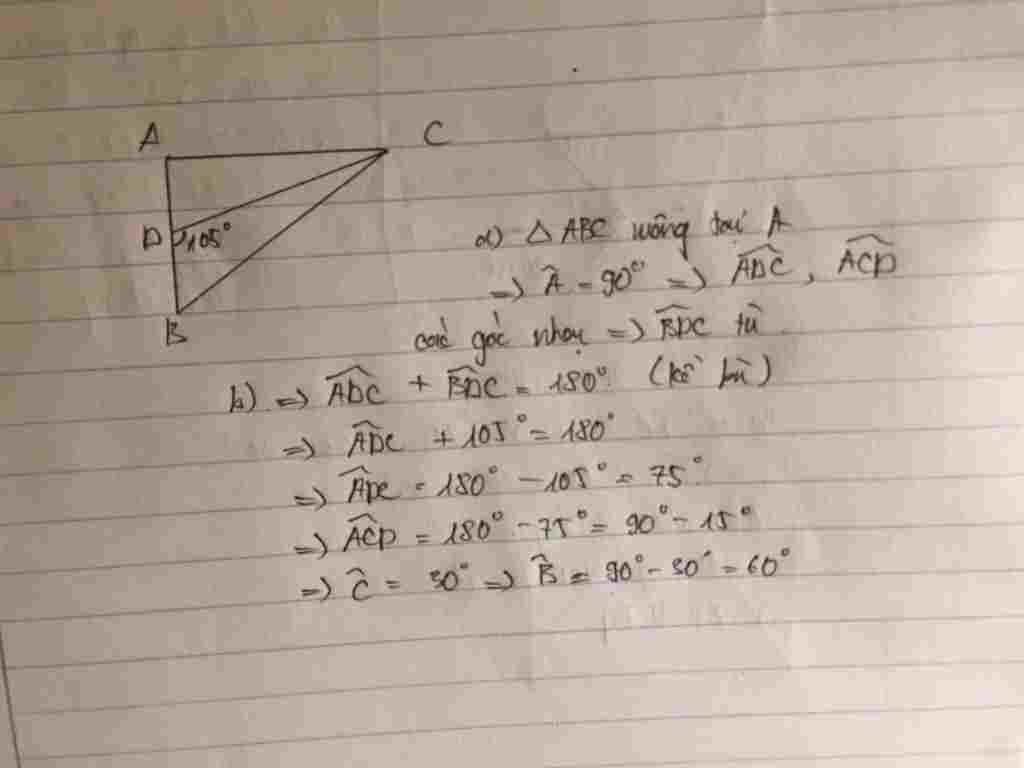 A
C
D 105°
B
a) △ ABC vuông tại A
=> Â = 90° => ADC, ACD
các góc nhọn => BDC tù
b) => ADC + BDC = 180° (kề bù)
=> ADC + 105° = 180°
=> ADC = 180° - 105° = 75°
=> ACD = 180° - 75° = 90° - 15°
=> Ĉ = 30° => B̂ = 90° - 30° = 60°